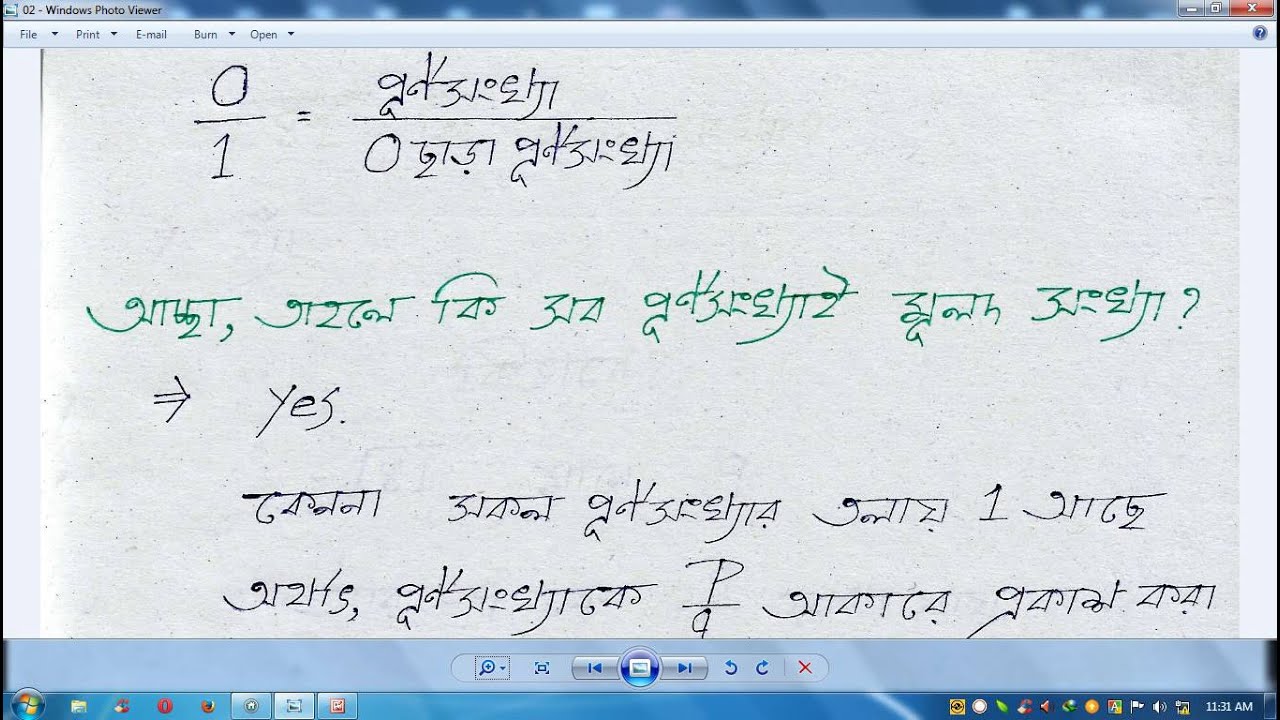 02 - Windows Photo Viewer
File Print E-mail Burn Open
0/1 = পূর্ণসংখ্যা/0 ছাড়া পূর্ণসংখ্যা
আচ্ছা, তাহলে কি সব পূর্ণসংখ্যাই মূলদ সংখ্যা?
⇒ Yes.
কেননা সকল পূর্ণসংখ্যার তলায় 1 আছে
অর্থাৎ, পূর্ণসংখ্যাকে P/q আকারে প্রকাশ করা
11:31 AM